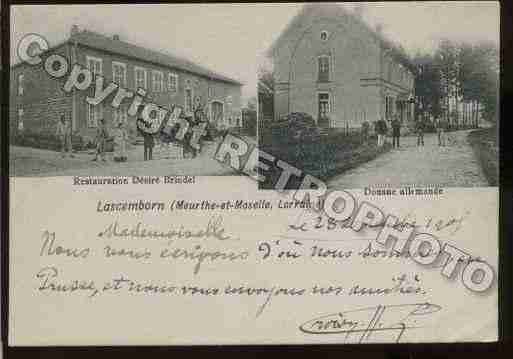 © Cartespostalesretrophoto.com
Restauration Désiré Brindel
Douane allemande
Lascemborn (Meurthe-et-Moselle, Lorraine)
Le 28
Mademoiselle
Nous nous écrivons d'où nous sommes
Prusse, et nous vous envoyons nos amitiés.